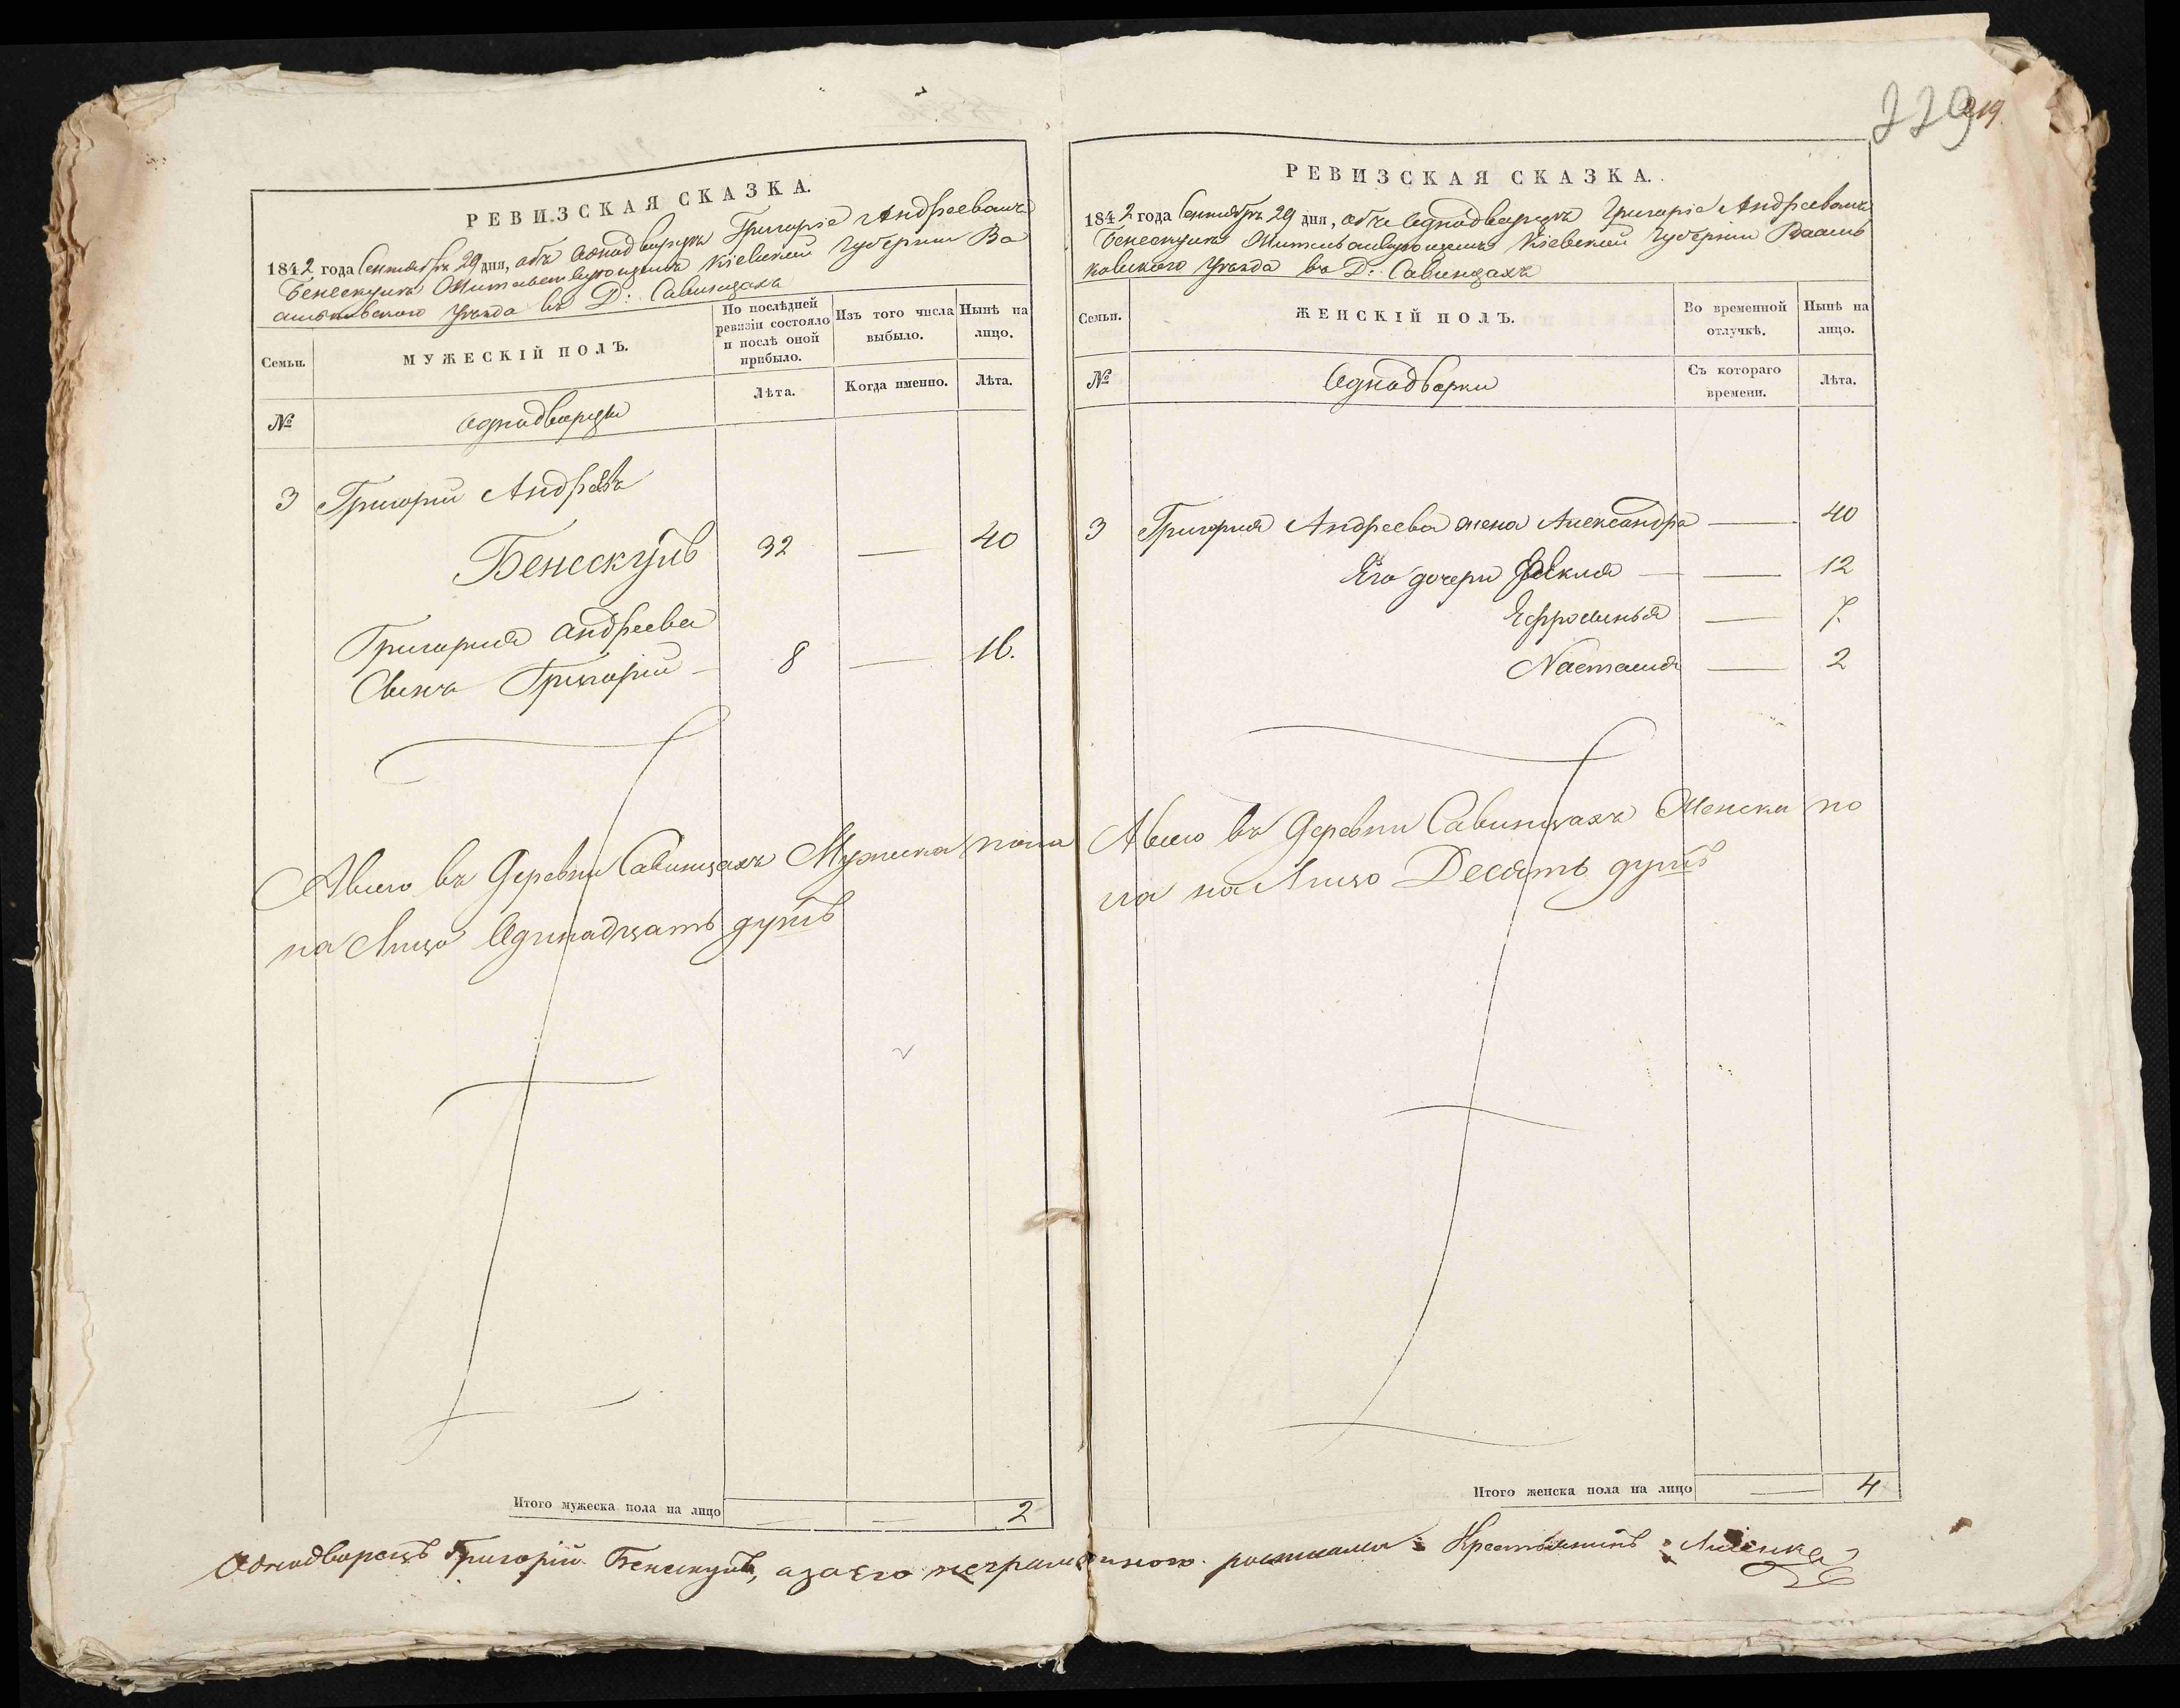 229
219.
РЕВИЗСКАЯ СКАЗКА.
1842 года Сентября 29 дня, объ Однодворцѣ Григоріе Андреевомъ
Бенескулѣ Жительствующемъ Кіевской Губерніи Ва
сильковского Уѣзда въ Д: Савинцахъ
Семьи.
МУЖЕСКІЙ ПОЛЪ.
По послѣдней ревизіи состояло и послѣ оной прибыло.
Изъ того числа выбыло.
Нынѣ на лицо.
№
Однодворцы
Лѣта.
Когда именно.
Лѣта.
3 Григорий Андреевъ
Бенескулъ 32 — 40
Григория Андреева
Сынъ Григорий — 8 — 16.
Авсего въ Деревни Савинцахъ Мужеска пола
на Лицо Одинадцать душъ
Итого мужеска пола на лицо — — 2
РЕВИЗСКАЯ СКАЗКА.
1842 года Сентября 29 дня, объ Однодворцѣ Григоріе Андреевомъ
Бенескулѣ Жительствующемъ Кіевской Губерніи Василь
ковского Уѣзда въ Д: Савинцахъ
Семьи.
ЖЕНСКІЙ ПОЛЪ.
Во временной отлучкѣ.
Нынѣ на лицо.
№
Однодворки
Съ котораго времени.
Лѣта.
3 Григория Андреева жена Александра — 40
Его дочери — — 12
Ефросинья — 7.
Настасия — 2
Авсего въ Деревни Савинцахъ Женска по
ла на Лицо Десять душъ
Итого женска пола на лицо — 4
Однодворецъ Григорій Бенескулъ, азаего неграмотного росписался Крестьянинъ